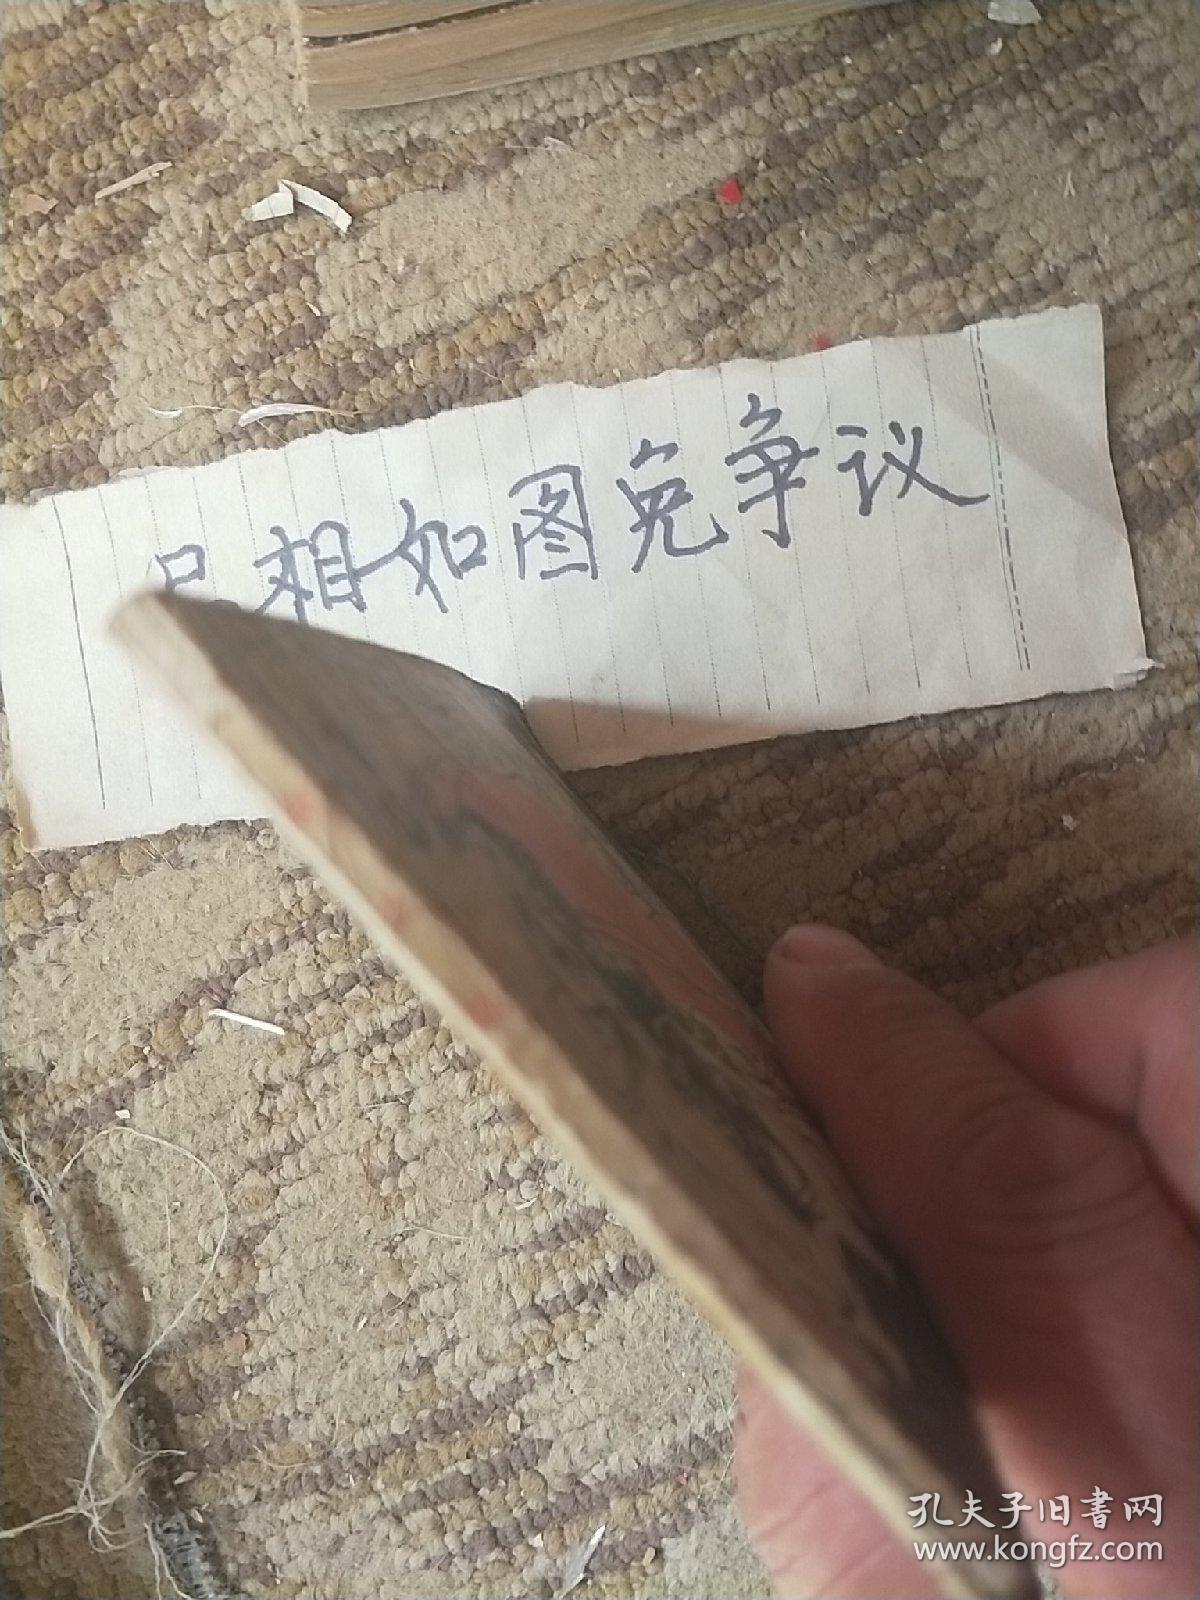 品相如图免争议
孔夫子旧书网
www.kongfz.com